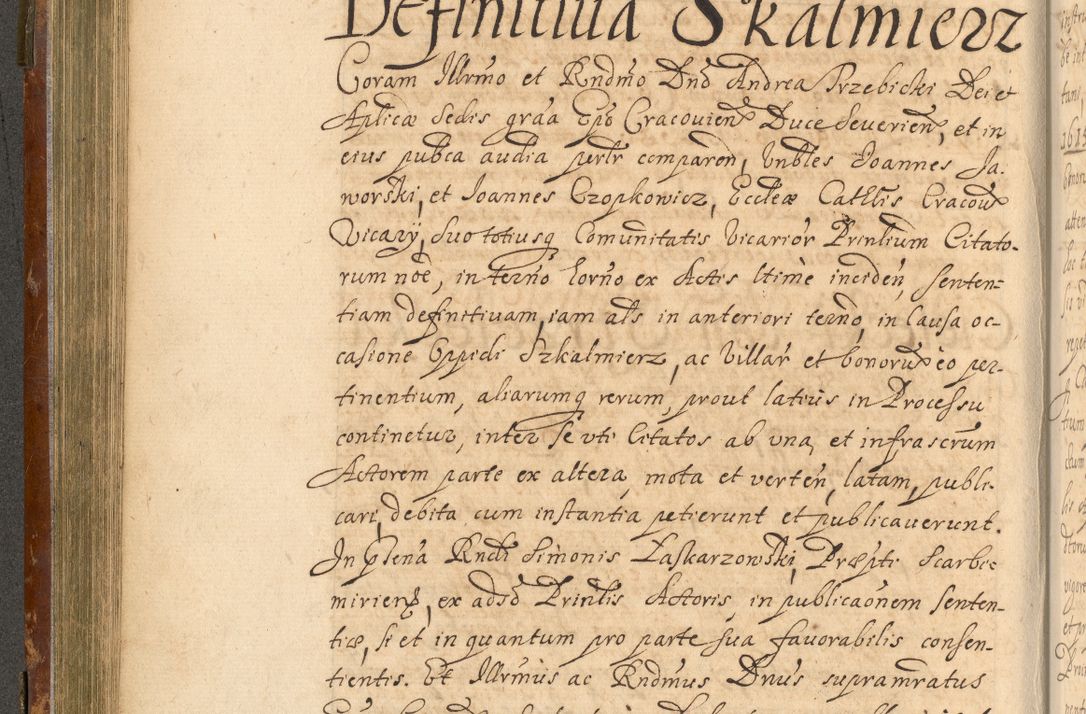 Definitiua Skalmierz
Coram Illrmo et Rndmo Dno Andrea Trzebicki Dei et
Aplicæ Sedis graa Epo Cracovien Duce Severien, et in
eius pubca audia perlr comparen, Vnbles Joannes Ja-
worski, et Joannes Czopkowicz, Eccleæ Cathlis Cracov
Vicarÿ, suo totiusq Comunitatis Vicarior Prinlium Citato-
rum noe, in termo horno ex Actis ltime inciden, senten-
tiam definitiuam, iam als in anteriori termo, in Causa oc-
casione Oppidi Szkalmierz, ac Villar et bonoru eo per-
tinentium, aliarumq rerum, prout latius in Processu
continetur, inter se vti Citatos ab vna, et infrascrum
Actorem parte ex altera, mota et verten, latam, publi-
cari, debita cum instantia petierunt et publicauerunt.
In plena Rndi Simonis Laskarzowski, Præpti Scarbi-
mirien, ex adso Prinlis Actoris, in publicaonem senten-
tiæ, si et in quantum pro parte sua favorabilis consen-
tientis. Et Illrmus ac Rndmus Dnus supramratus